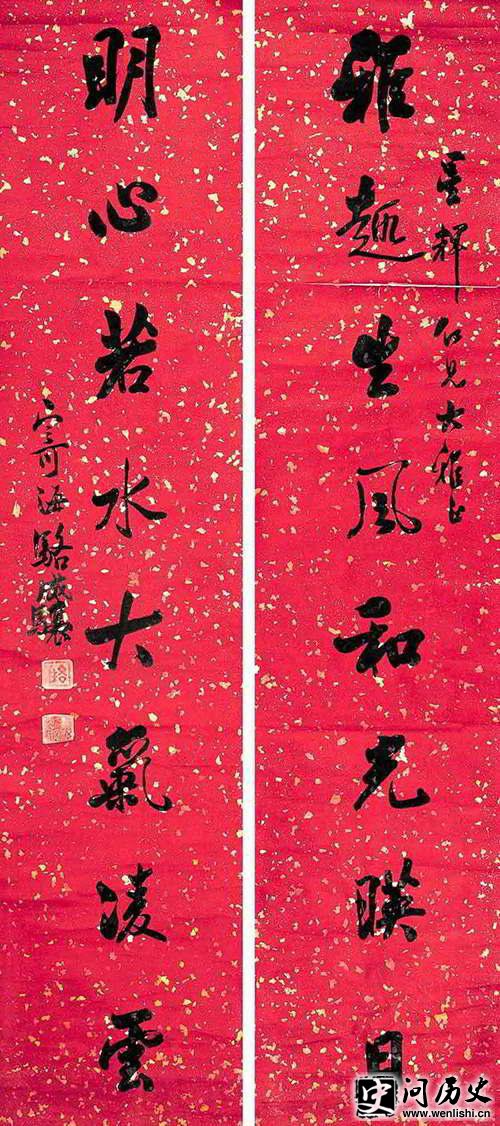 仁兄大雅正
雅趣生風和光暎日
明心若水大氣凌雲
海駱成驤
駱
史问历史
www.wenlishi.cn